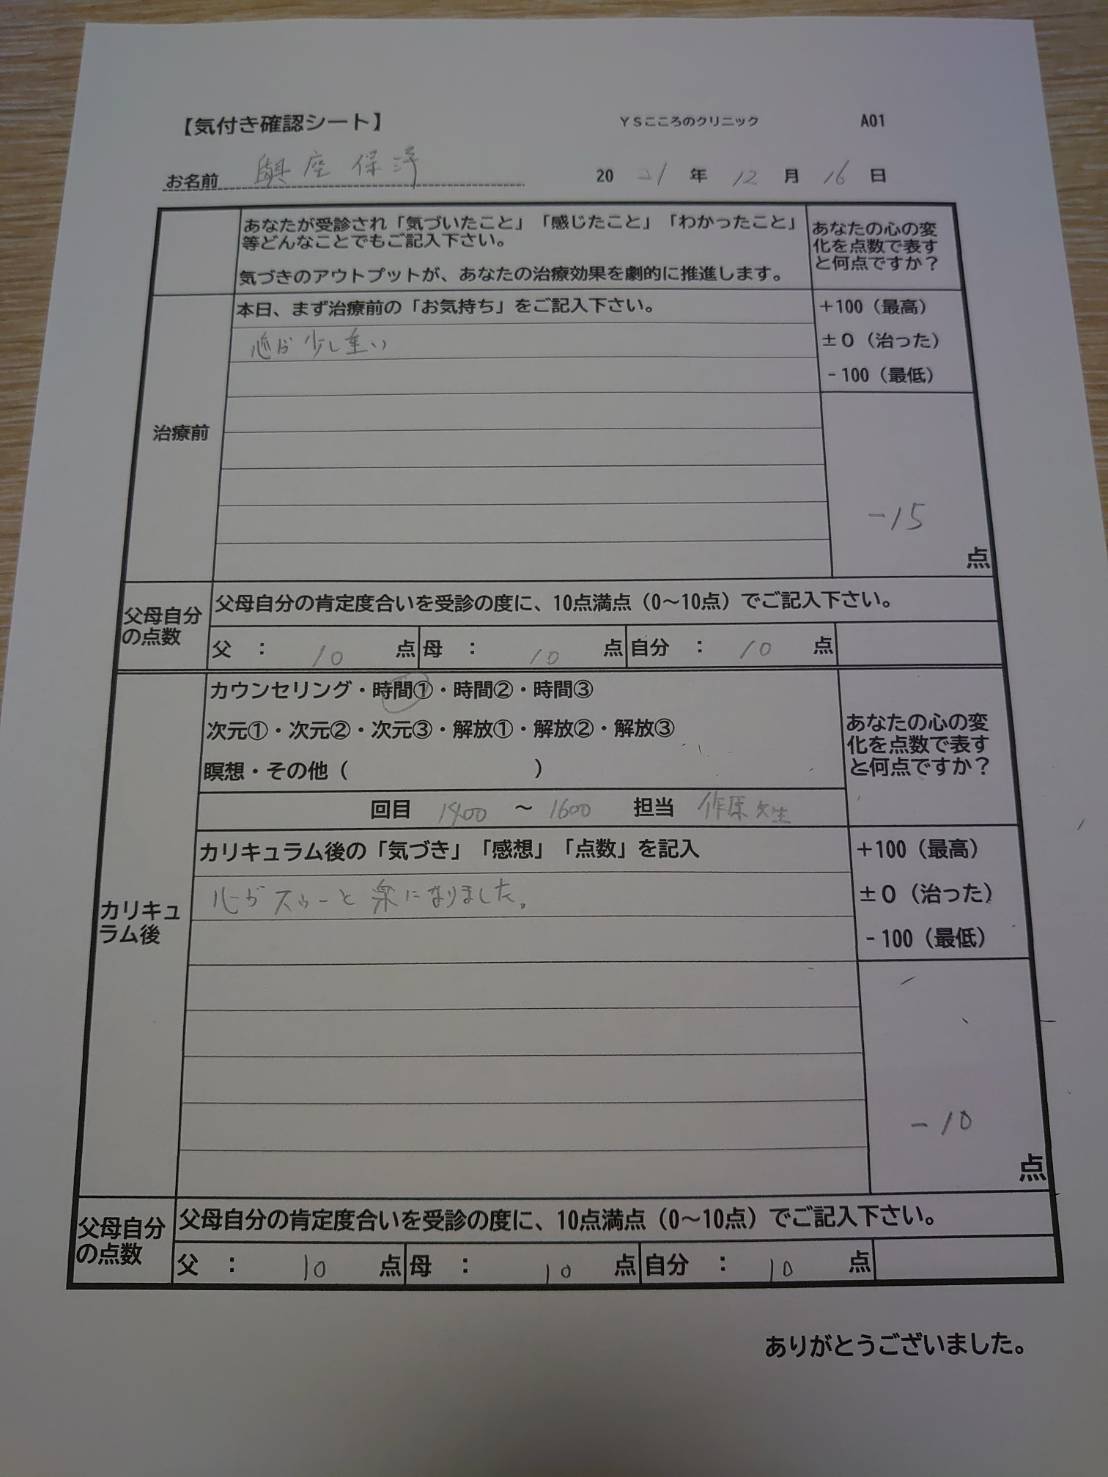 【気付き確認シート】 YSこころのクリニック A01
お名前 與座保洋 20 21 年 12 月 16 日
あなたが受診され「気づいたこと」「感じたこと」「わかったこと」
等どんなことでもご記入下さい。
気づきのアウトプットが、あなたの治療効果を劇的に推進します。
あなたの心の変
化を点数で表す
と何点ですか？
治療前
本日、まず治療前の「お気持ち」をご記入下さい。
心が少し重い
＋100（最高）
±０（治った）
－100（最低）
－15
点
父母自分
の点数
父母自分の肯定度合いを受診の度に、10点満点（0～10点）でご記入下さい。
父 ： 10 点 母 ： 10 点 自分 ： 10 点
カリキュ
ラム後
カウンセリング・時間①・時間②・時間③
次元①・次元②・次元③・解放①・解放②・解放③
瞑想・その他（ ）
あなたの心の変
化を点数で表す
と何点ですか？
回目 1400 ～ 1600 担当 作原先生
カリキュラム後の「気づき」「感想」「点数」を記入
心がスゥーと楽になりました。
＋100（最高）
±０（治った）
－100（最低）
－10
点
父母自分
の点数
父母自分の肯定度合いを受診の度に、10点満点（0～10点）でご記入下さい。
父 ： 10 点 母 ： 10 点 自分 ： 10 点
ありがとうございました。